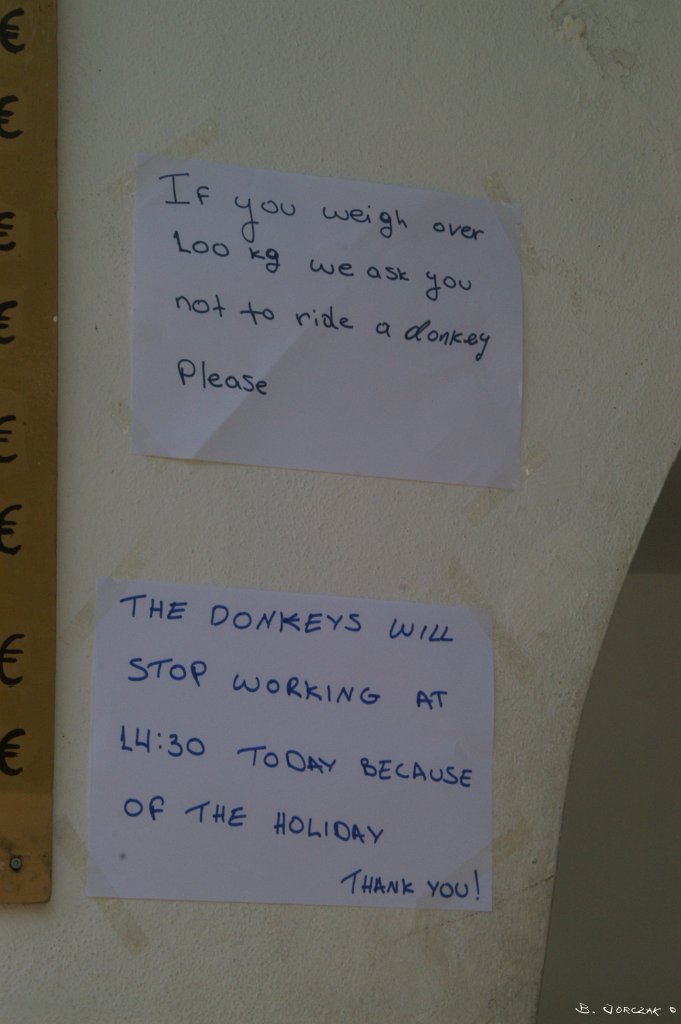 €
€
€
€
€
€
€
€
If you weigh over
100 kg we ask you
not to ride a donkey
Please
THE DONKEYS WILL
STOP WORKING AT
14:30 TODAY BECAUSE
OF THE HOLIDAY
THANK YOU!
B. JORCZAK